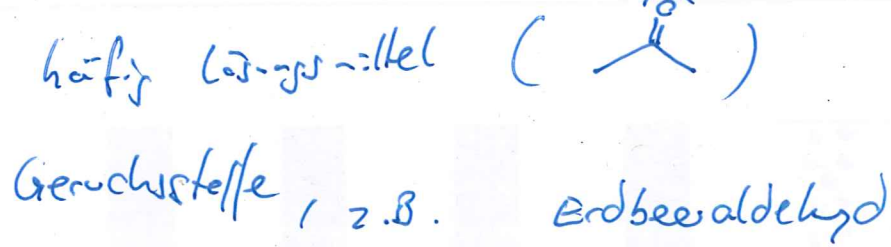 häfig Lösungsmittel ( O )
Geruchsstoffe, z.B. Erdbeeraldehyd